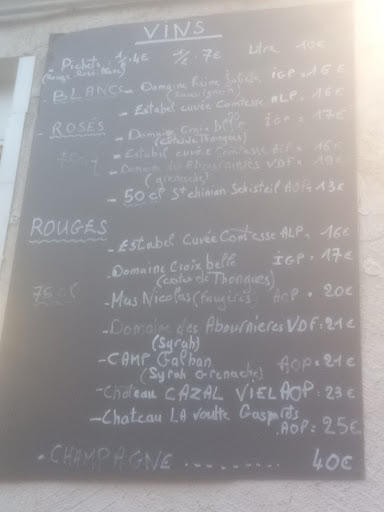 VINS
- Pichets : 1/4 . 4€ 1/2 . 7€ Litre 10€
(Rouge Rosé Blanc)
BLANCS - Domaine Reine Juliette IGP = 16€
(Sauvignon)
- Estabel cuvée Comtesse ALP. 16€
- ROSÉS - Domaine Croix belle IGP = 17€
(Côtes de Thongues)
- Estabel cuvée Comtesse ALP = 16€
- Domaine des Abournieres VDF = 19€
(grenache)
- 50 cl St chinian Schisteil AOP = 13€
ROUGES
- Estabel Cuvée Comtesse ALP = 16€
- Domaine Croix belle IGP = 17€
(Côtes de Thongues)
75 cl - Mas Nicolas (faugères) AOP = 20€
- Domaine des Abournieres VDF = 21€
(Syrah)
- CAMP Galhan AOP = 21€
(Syrah Grenache)
- Château CAZAL VIEL AOP : 23€
- Chateau LA voulte Gasparets
AOP = 25€
- CHAMPAGNE .......... 40€